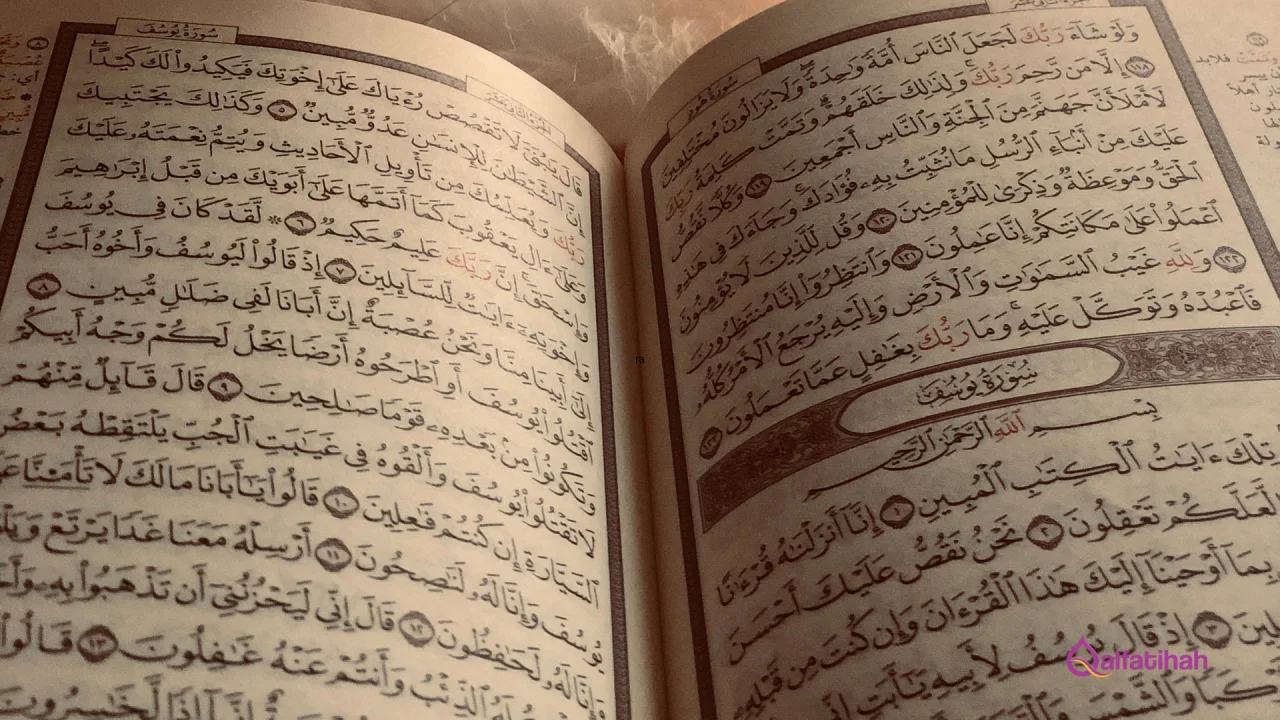 سُورَةُ هُودٍ
وَلَوْ شَآءَ رَبُّكَ لَجَعَلَ ٱلنَّاسَ أُمَّةً وَٰحِدَةً وَلَا يَزَالُونَ مُخْتَلِفِينَ
١١٨ إِلَّا مَن رَّحِمَ رَبُّكَ وَلِذَٰلِكَ خَلَقَهُمْ وَتَمَّتْ كَلِمَةُ رَبِّكَ
لَأَمْلَأَنَّ جَهَنَّمَ مِنَ ٱلْجِنَّةِ وَٱلنَّاسِ أَجْمَعِينَ ١١٩ وَكُلًّا نَّقُصُّ
عَلَيْكَ مِنْ أَنۢبَآءِ ٱلرُّسُلِ مَا نُثَبِّتُ بِهِۦ فُؤَادَكَ وَجَآءَكَ فِي هَٰذِهِ
ٱلْحَقُّ وَمَوْعِظَةٌ وَذِكْرَىٰ لِلْمُؤْمِنِينَ ١٢٠ وَقُل لِّلَّذِينَ لَا يُؤْمِنُونَ
ٱعْمَلُوا۟ عَلَىٰ مَكَانَتِكُمْ إِنَّا عَٰمِلُونَ ١٢١ وَٱنتَظِرُوٓا۟ إِنَّا مُنتَظِرُونَ
١٢٢ وَلِلَّهِ غَيْبُ ٱلسَّمَٰوَٰتِ وَٱلْأَرْضِ وَإِلَيْهِ يُرْجَعُ ٱلْأَمْرُ كُلُّهُۥ
فَٱعْبُدْهُ وَتَوَكَّلْ عَلَيْهِ وَمَا رَبُّكَ بِغَٰفِلٍ عَمَّا تَعْمَلُونَ ١٢٣
سُورَةُ يُوسُفَ
بِسْمِ ٱللَّهِ ٱلرَّحْمَٰنِ ٱلرَّحِيمِ
تِلْكَ ءَايَٰتُ ٱلْكِتَٰبِ ٱلْمُبِينِ ١ إِنَّآ أَنزَلْنَٰهُ قُرْءَٰنًا
لَّعَلَّكُمْ تَعْقِلُونَ ٢ نَحْنُ نَقُصُّ عَلَيْكَ أَحْسَنَ
بِمَآ أَوْحَيْنَآ إِلَيْكَ هَٰذَا ٱلْقُرْءَانَ وَإِن كُنتَ مِن قَبْلِهِۦ
٣ إِذْ قَالَ يُوسُفُ لِأَبِيهِ يَٰٓأَبَتِ
وَٱلشَّمْسَ
سُورَةُ يُوسُفَ
قَالَ يَٰبُنَيَّ لَا تَقْصُصْ رُءْيَاكَ عَلَىٰٓ إِخْوَتِكَ فَيَكِيدُوا۟ لَكَ كَيْدًا
إِنَّ ٱلشَّيْطَٰنَ لِلْإِنسَٰنِ عَدُوٌّ مُّبِينٌ ٥ وَكَذَٰلِكَ يَجْتَبِيكَ
رَبُّكَ وَيُعَلِّمُكَ مِن تَأْوِيلِ ٱلْأَحَادِيثِ وَيُتِمُّ نِعْمَتَهُۥ عَلَيْكَ
وَعَلَىٰٓ ءَالِ يَعْقُوبَ كَمَآ أَتَمَّهَا عَلَىٰٓ أَبَوَيْكَ مِن قَبْلُ إِبْرَٰهِيمَ
وَإِسْحَٰقَ إِنَّ رَبَّكَ عَلِيمٌ حَكِيمٌ ٦ ۞ لَّقَدْ كَانَ فِي يُوسُفَ
وَإِخْوَتِهِۦٓ ءَايَٰتٌ لِّلسَّآئِلِينَ ٧ إِذْ قَالُوا۟ لَيُوسُفُ وَأَخُوهُ أَحَبُّ
إِلَىٰٓ أَبِينَا مِنَّا وَنَحْنُ عُصْبَةٌ إِنَّ أَبَانَا لَفِي ضَلَٰلٍ مُّبِينٍ ٨
ٱقْتُلُوا۟ يُوسُفَ أَوِ ٱطْرَحُوهُ أَرْضًا يَخْلُ لَكُمْ وَجْهُ أَبِيكُمْ
وَتَكُونُوا۟ مِنۢ بَعْدِهِۦ قَوْمًا صَٰلِحِينَ ٩ قَالَ قَآئِلٌ مِّنْهُمْ
لَا تَقْتُلُوا۟ يُوسُفَ وَأَلْقُوهُ فِي غَيَٰبَتِ ٱلْجُبِّ يَلْتَقِطْهُ بَعْضُ
ٱلسَّيَّارَةِ إِن كُنتُمْ فَٰعِلِينَ ١٠ قَالُوا۟ يَٰٓأَبَانَا مَا لَكَ لَا تَأْمَ۫نَّا
يُوسُفَ وَإِنَّا لَهُۥ لَنَٰصِحُونَ ١١ أَرْسِلْهُ مَعَنَا غَدًا يَرْتَعْ
وَإِنَّا لَهُۥ لَحَٰفِظُونَ ١٢ قَالَ إِنِّي لَيَحْزُنُنِيٓ أَن تَذْهَبُوا۟ بِهِۦ
ٱلذِّئْبُ وَأَنتُمْ عَنْهُ غَٰفِلُونَ ١٣ قَالُوا۟
إِنَّآ إِذًا لَّخَٰسِرُونَ
ra
alfatihah